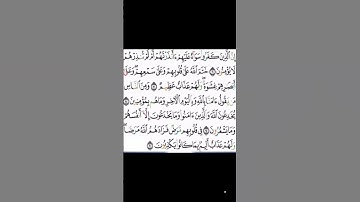 إِنَّ ٱلَّذِينَ كَفَرُوا۟ سَوَآءٌ عَلَيْهِمْ ءَأَنذَرْتَهُمْ أَمْ لَمْ تُنذِرْهُمْ
لَا يُؤْمِنُونَ ۝ خَتَمَ ٱللَّهُ عَلَىٰ قُلُوبِهِمْ وَعَلَىٰ سَمْعِهِمْ ۖ وَعَلَىٰٓ
أَبْصَٰرِهِمْ غِشَٰوَةٌ ۖ وَلَهُمْ عَذَابٌ عَظِيمٌ ۝ وَمِنَ ٱلنَّاسِ
مَن يَقُولُ ءَامَنَّا بِٱللَّهِ وَبِٱلْيَوْمِ ٱلْءَاخِرِ وَمَا هُم بِمُؤْمِنِينَ ۝
يُخَٰدِعُونَ ٱللَّهَ وَٱلَّذِينَ ءَامَنُوا۟ وَمَا يَخْدَعُونَ إِلَّآ أَنفُسَهُمْ
وَمَا يَشْعُرُونَ ۝ فِى قُلُوبِهِم مَّرَضٌ فَزَادَهُمُ ٱللَّهُ مَرَضًا ۖ
وَلَهُمْ عَذَابٌ أَلِيمٌۢ بِمَا كَانُوا۟ يَكْذِبُونَ ۝